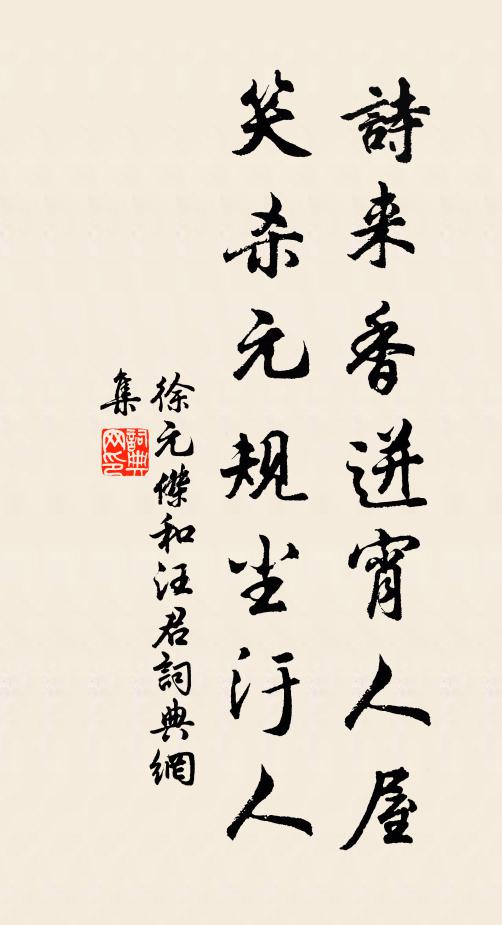 詩来香迸宵人屋
笑杀元規尘汙人
徐元傑和汪君詞典網
集
詞典网印